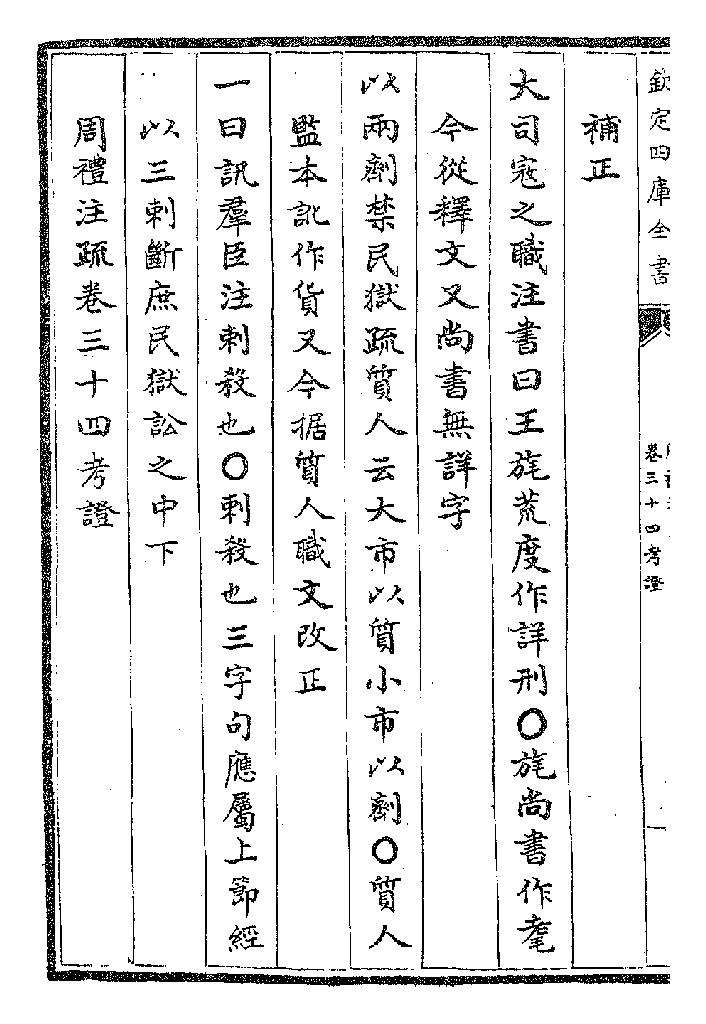 欽定四庫全書
卷三十四考證
補正
大司寇之職注書曰王旄荒度作詳刑○旄尚書作耄
今從釋文又尚書無詳字
以兩劑禁民獄疏質人云大市以質小市以劑○質人
監本訛作貨又今据質人職文改正
一曰訊羣臣注刺殺也○刺殺也三字句應屬上節經
以三刺斷庶民獄訟之中下
周禮注疏卷三十四考證